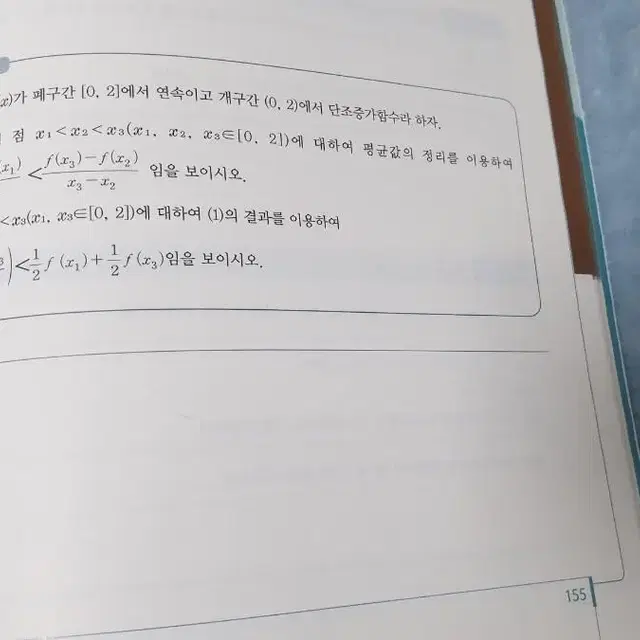 x)가 폐구간 [0, 2]에서 연속이고 개구간 (0, 2)에서 단조증가함수라 하자.
점 x₁<x₂<x₃(x₁, x₂, x₃∈[0, 2])에 대하여 평균값의 정리를 이용하여
x₁) < f(x₃)-f(x₂) / x₃-x₂ 임을 보이시오.
<x₃(x₁, x₃∈[0, 2])에 대하여 (1)의 결과를 이용하여
)<1/2 f(x₁)+1/2 f(x₃)임을 보이시오.
155